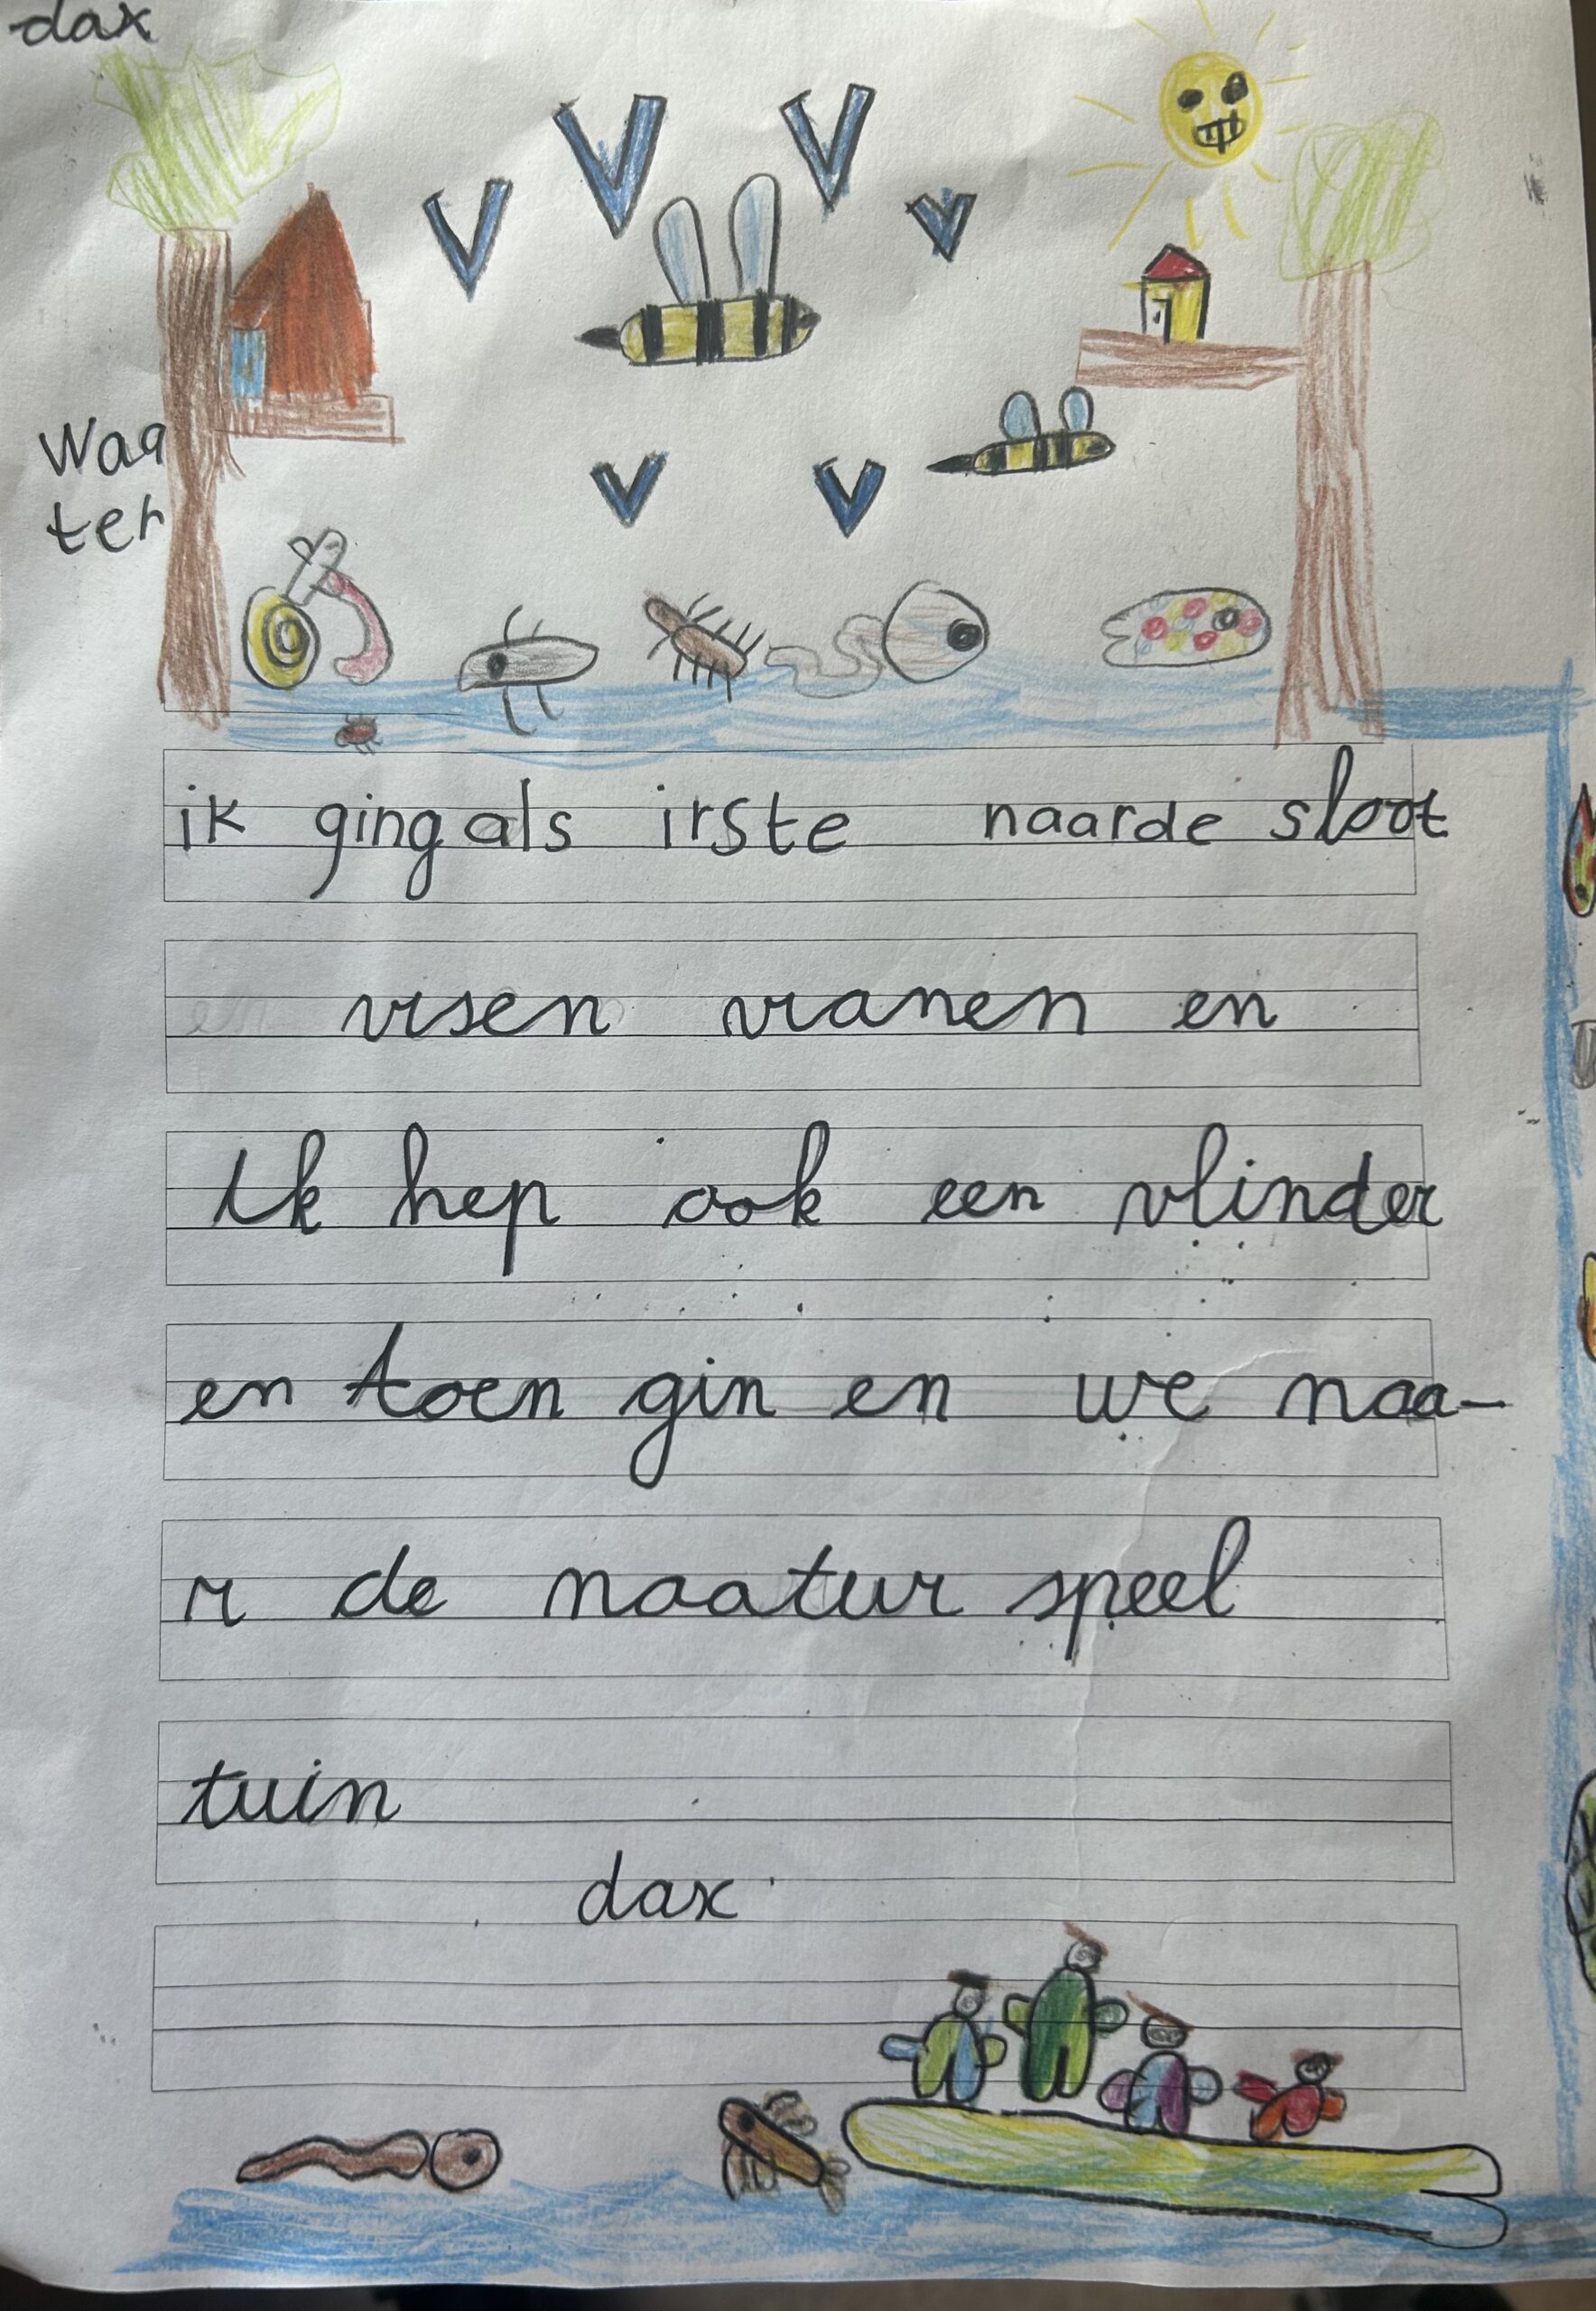 dax
Waa
ter
ik ging als irste naar de sloot
visen vranen en
Ik hep ook een vlinder
en toen gin en we naa-
r de naatuur speel
tuin
dax